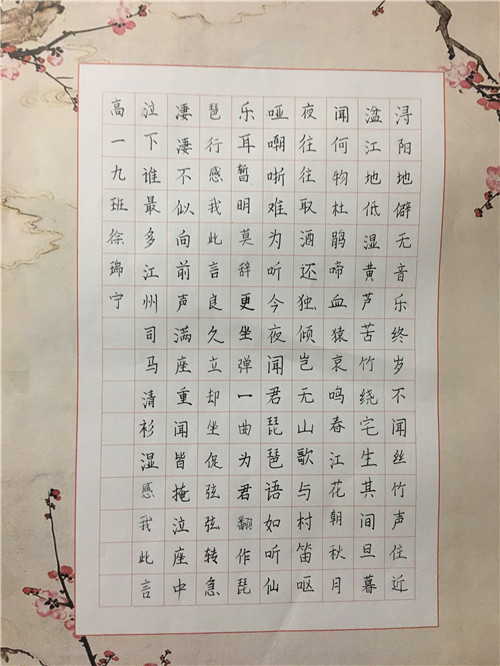 浔阳地僻无音乐终岁不闻丝竹声住近
湓江地低湿黄芦苦竹绕宅生其间旦暮
闻何物杜鹃啼血猿哀鸣春江花朝秋月
夜往往取酒还独倾岂无山歌与村笛呕
哑嘲哳难为听今夜闻君琵琶语如听仙
乐耳暂明莫辞更坐弹一曲为君翻作琵
琶行感我此言良久立却坐促弦弦转急
凄凄不似向前声满座重闻皆掩泣座中
泣下谁最多江州司马清衫湿感我此言
高一九班徐瑞宁